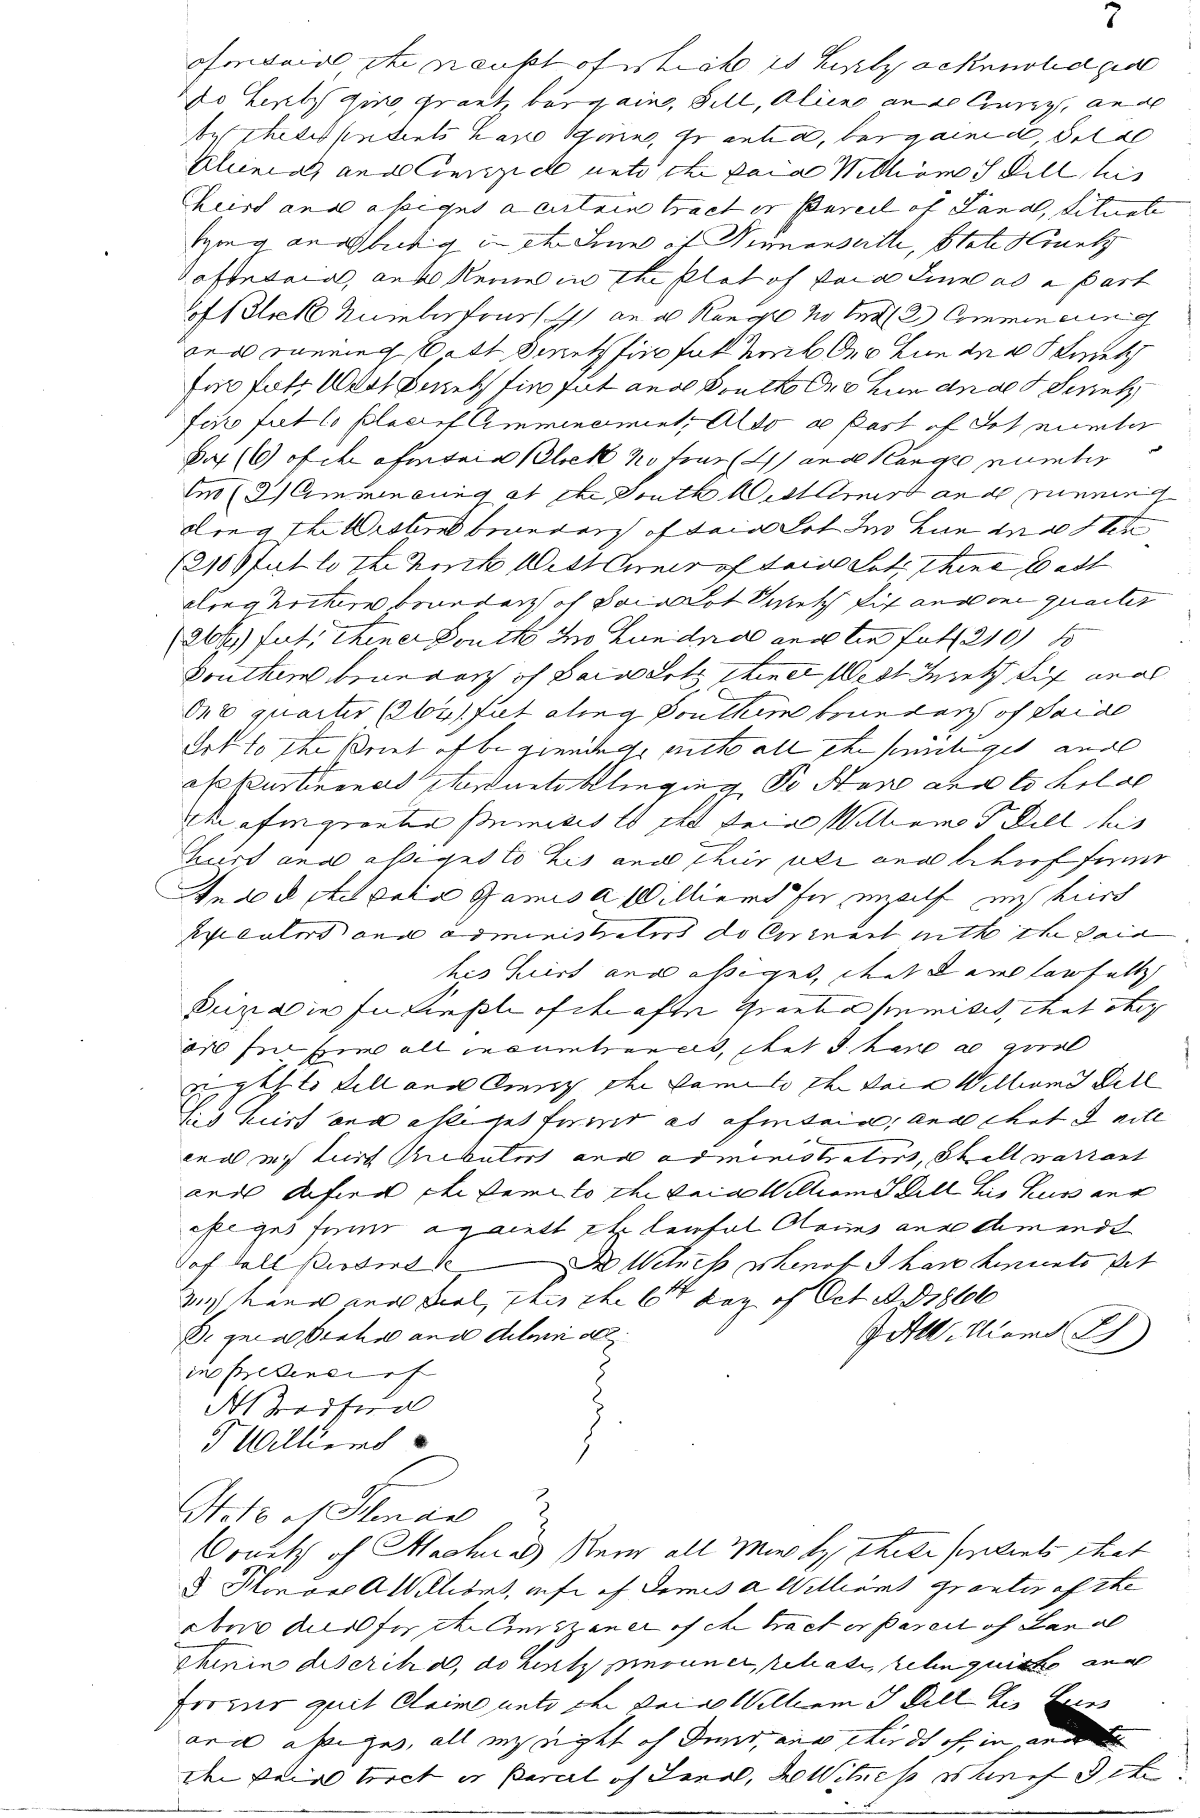 7
aforesaid, the receipt of which is hereby acknowledged
do hereby give, grant, bargain, Sell, Alien and Convey, and
by these presents have given, granted, bargained, Sold
Aliened, and Conveyed unto the said William T Dell his
heirs and assigns a certain tract or parcel of Land, Situate
lying and being in the Town of Newnansville, State & County
aforesaid, and Known in the plat of said Town as a part
of Block Number four (4) and Range No two (2) Commencing
and running East Seventy five feet North One hundred & Seventy
five feet, West Seventy five feet and South One hundred & Seventy
five feet to place of Commencement; Also a part of Lot number
Six (6) of the aforesaid Block No four (4) and Range number
two (2) Commencing at the South West Corner and running
along the Western boundary of said Lot Two hundred & ten
(210) feet to the North West Corner of said Lot; thence East
along Nothern boundary of Said Lot Twenty Six and one quarter
(26¼) feet; thence South Two hundred and ten feet (210) to
Southern boundary of Said Lot, thence West Twenty Six and
One quarter (26¼) feet along Southern boundary of Said
Lot to the point of beginning, with all the privileges and
appurtinances thereunto belonging, To Have and to hold
the aforegranted premises to the said William T Dell his
heirs and assigns to his and their use and behoof forever
And I the said James A Williams for myself my heirs
Executors and administrators do Covenant with the said
his heirs and assigns, that I am lawfully
Seized in fee Simple of the afore granted premises, that they
are free from all incumbrances, that I have a good
right to sell and Convey the same to the said William T Dell
his heirs and assigns forever as aforesaid; and that I will
and my heirs Executors and administrators, Shall warrant
and defend the same to the said William T Dell his heirs and
assigns forever against the lawful Claims and demands
of all persons &c In Witness whereof I have hereunto set
my hand and Seal, this the 6th day of Oct A.D 1866
Signed Sealed and delivered J A Williams LS
in presence of
A Bradford
T Williams
State of Florida
County of Alachua Know all Men by these presents that
I A Williams, wife of James A Williams grantor of the
above deed for the Conveyance of the tract or parcel of Land
therein described, do hereby renounce, release, relinquish and
forever quit Claim unto the said William T Dell his heirs
and assigns, all my right of Dower, and thirds of, in and to
the said tract or parcel of Land, In Witness whereof I the